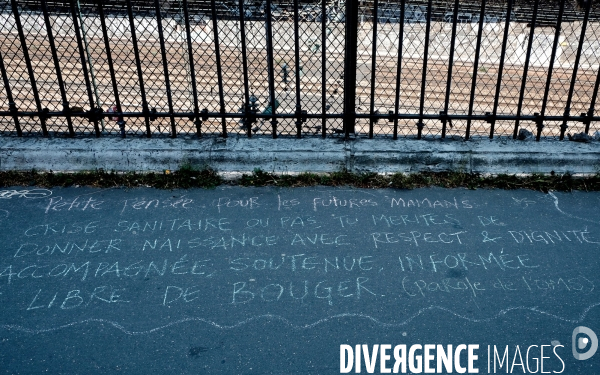 Petite Pensée pour les futures Mamans
CRISE SANITAIRE OU PAS TU MERITES DE
DONNER NAISSANCE AVEC RESPECT & DIGNITÉ
ACCOMPAGNÉE, SOUTENUE, INFORMÉE
LIBRE DE BOUGER (parole de l'oms)
DIVERGENCE IMAGES